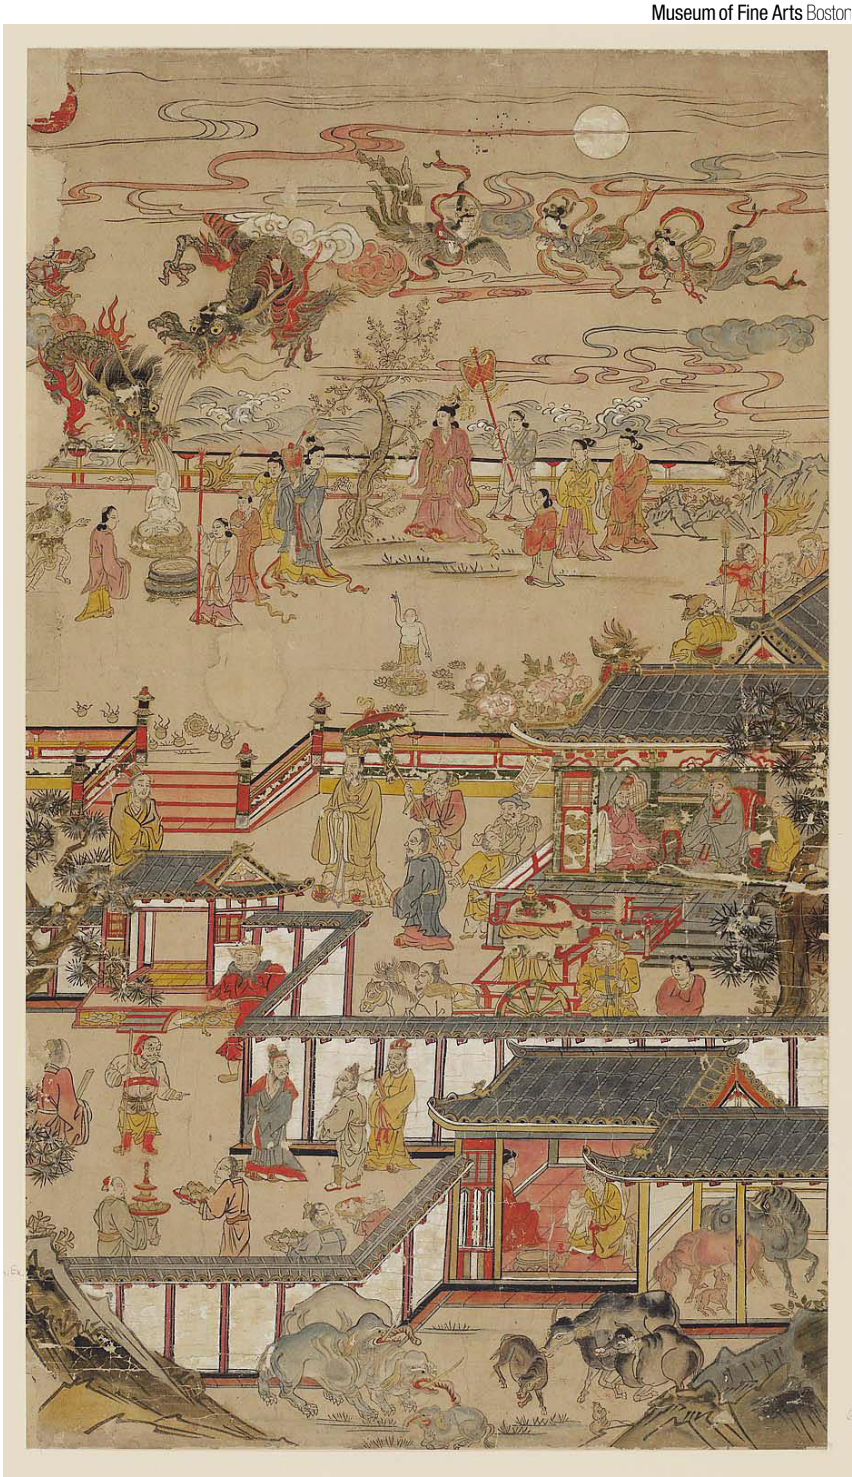 Museum of Fine Arts Boston